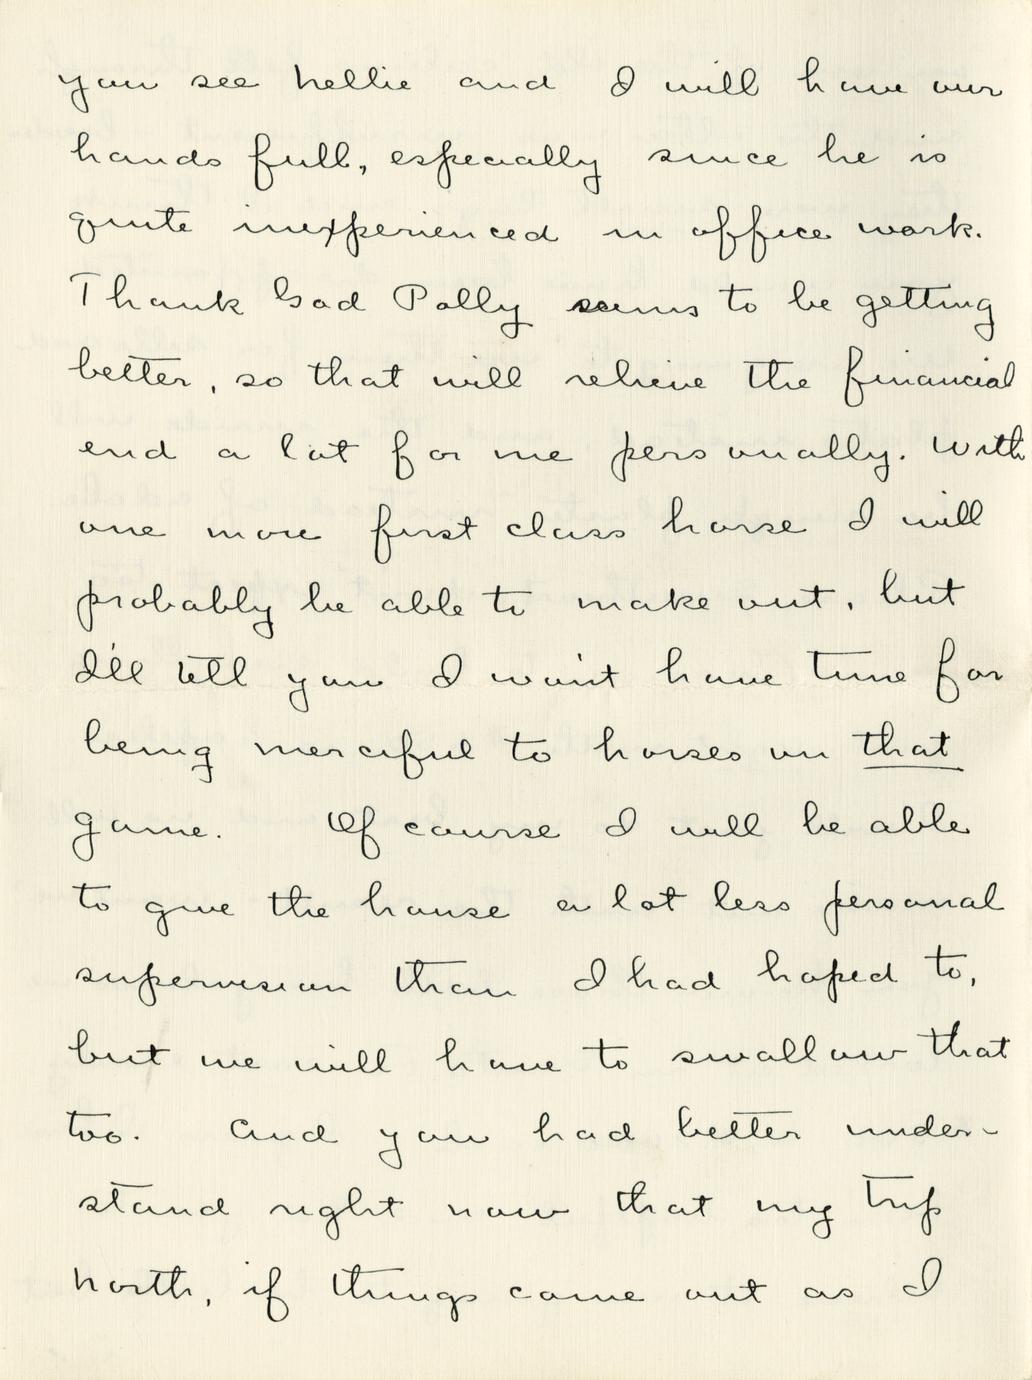 you see Nellie and I will have our
hands full, especially since he is
quite inexperienced in office work.
Thank God Polly seems to be getting
better, so that will relieve the financial
end a lot for me personally. With
one more first class horse I will
probably be able to make out, but
I'll tell you I won't have time for
being merciful to horses on that
game. Of course I will be able
to give the house a lot less personal
supervision than I had hoped to,
but we will have to swallow that
too. And you had better under-
stand right now that my trip
North, if things come out as I